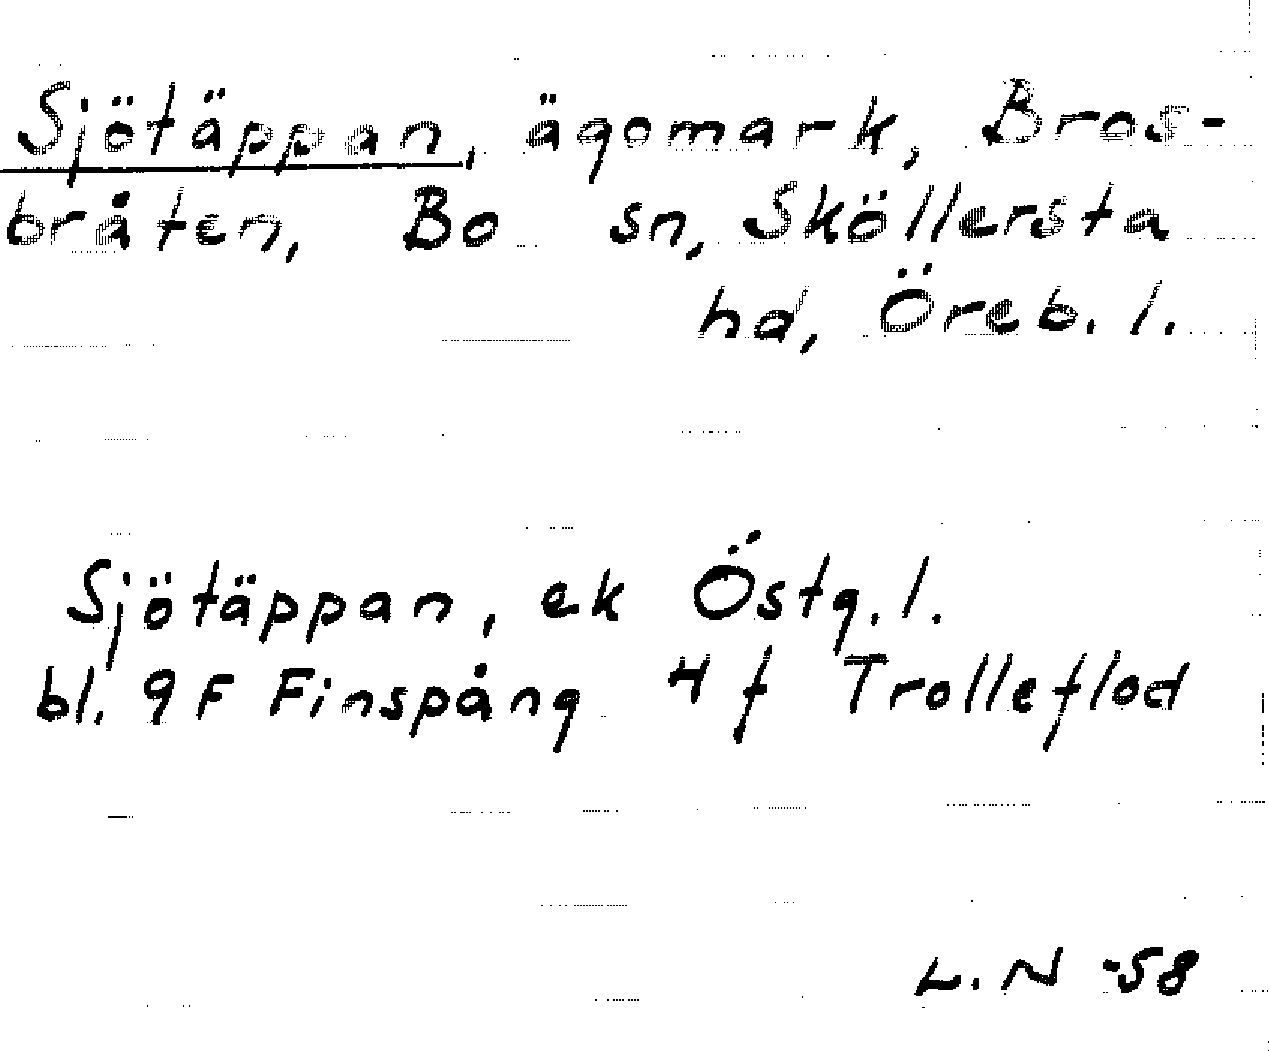 Sjötäppan, ägomark, Bros-
bråten, Bo sn, Sköllersta
hd, Öreb. l.
Sjötäppan, ek Östg. l.
bl. 9 F Finspång 4 f Trolleflod
L. N -58